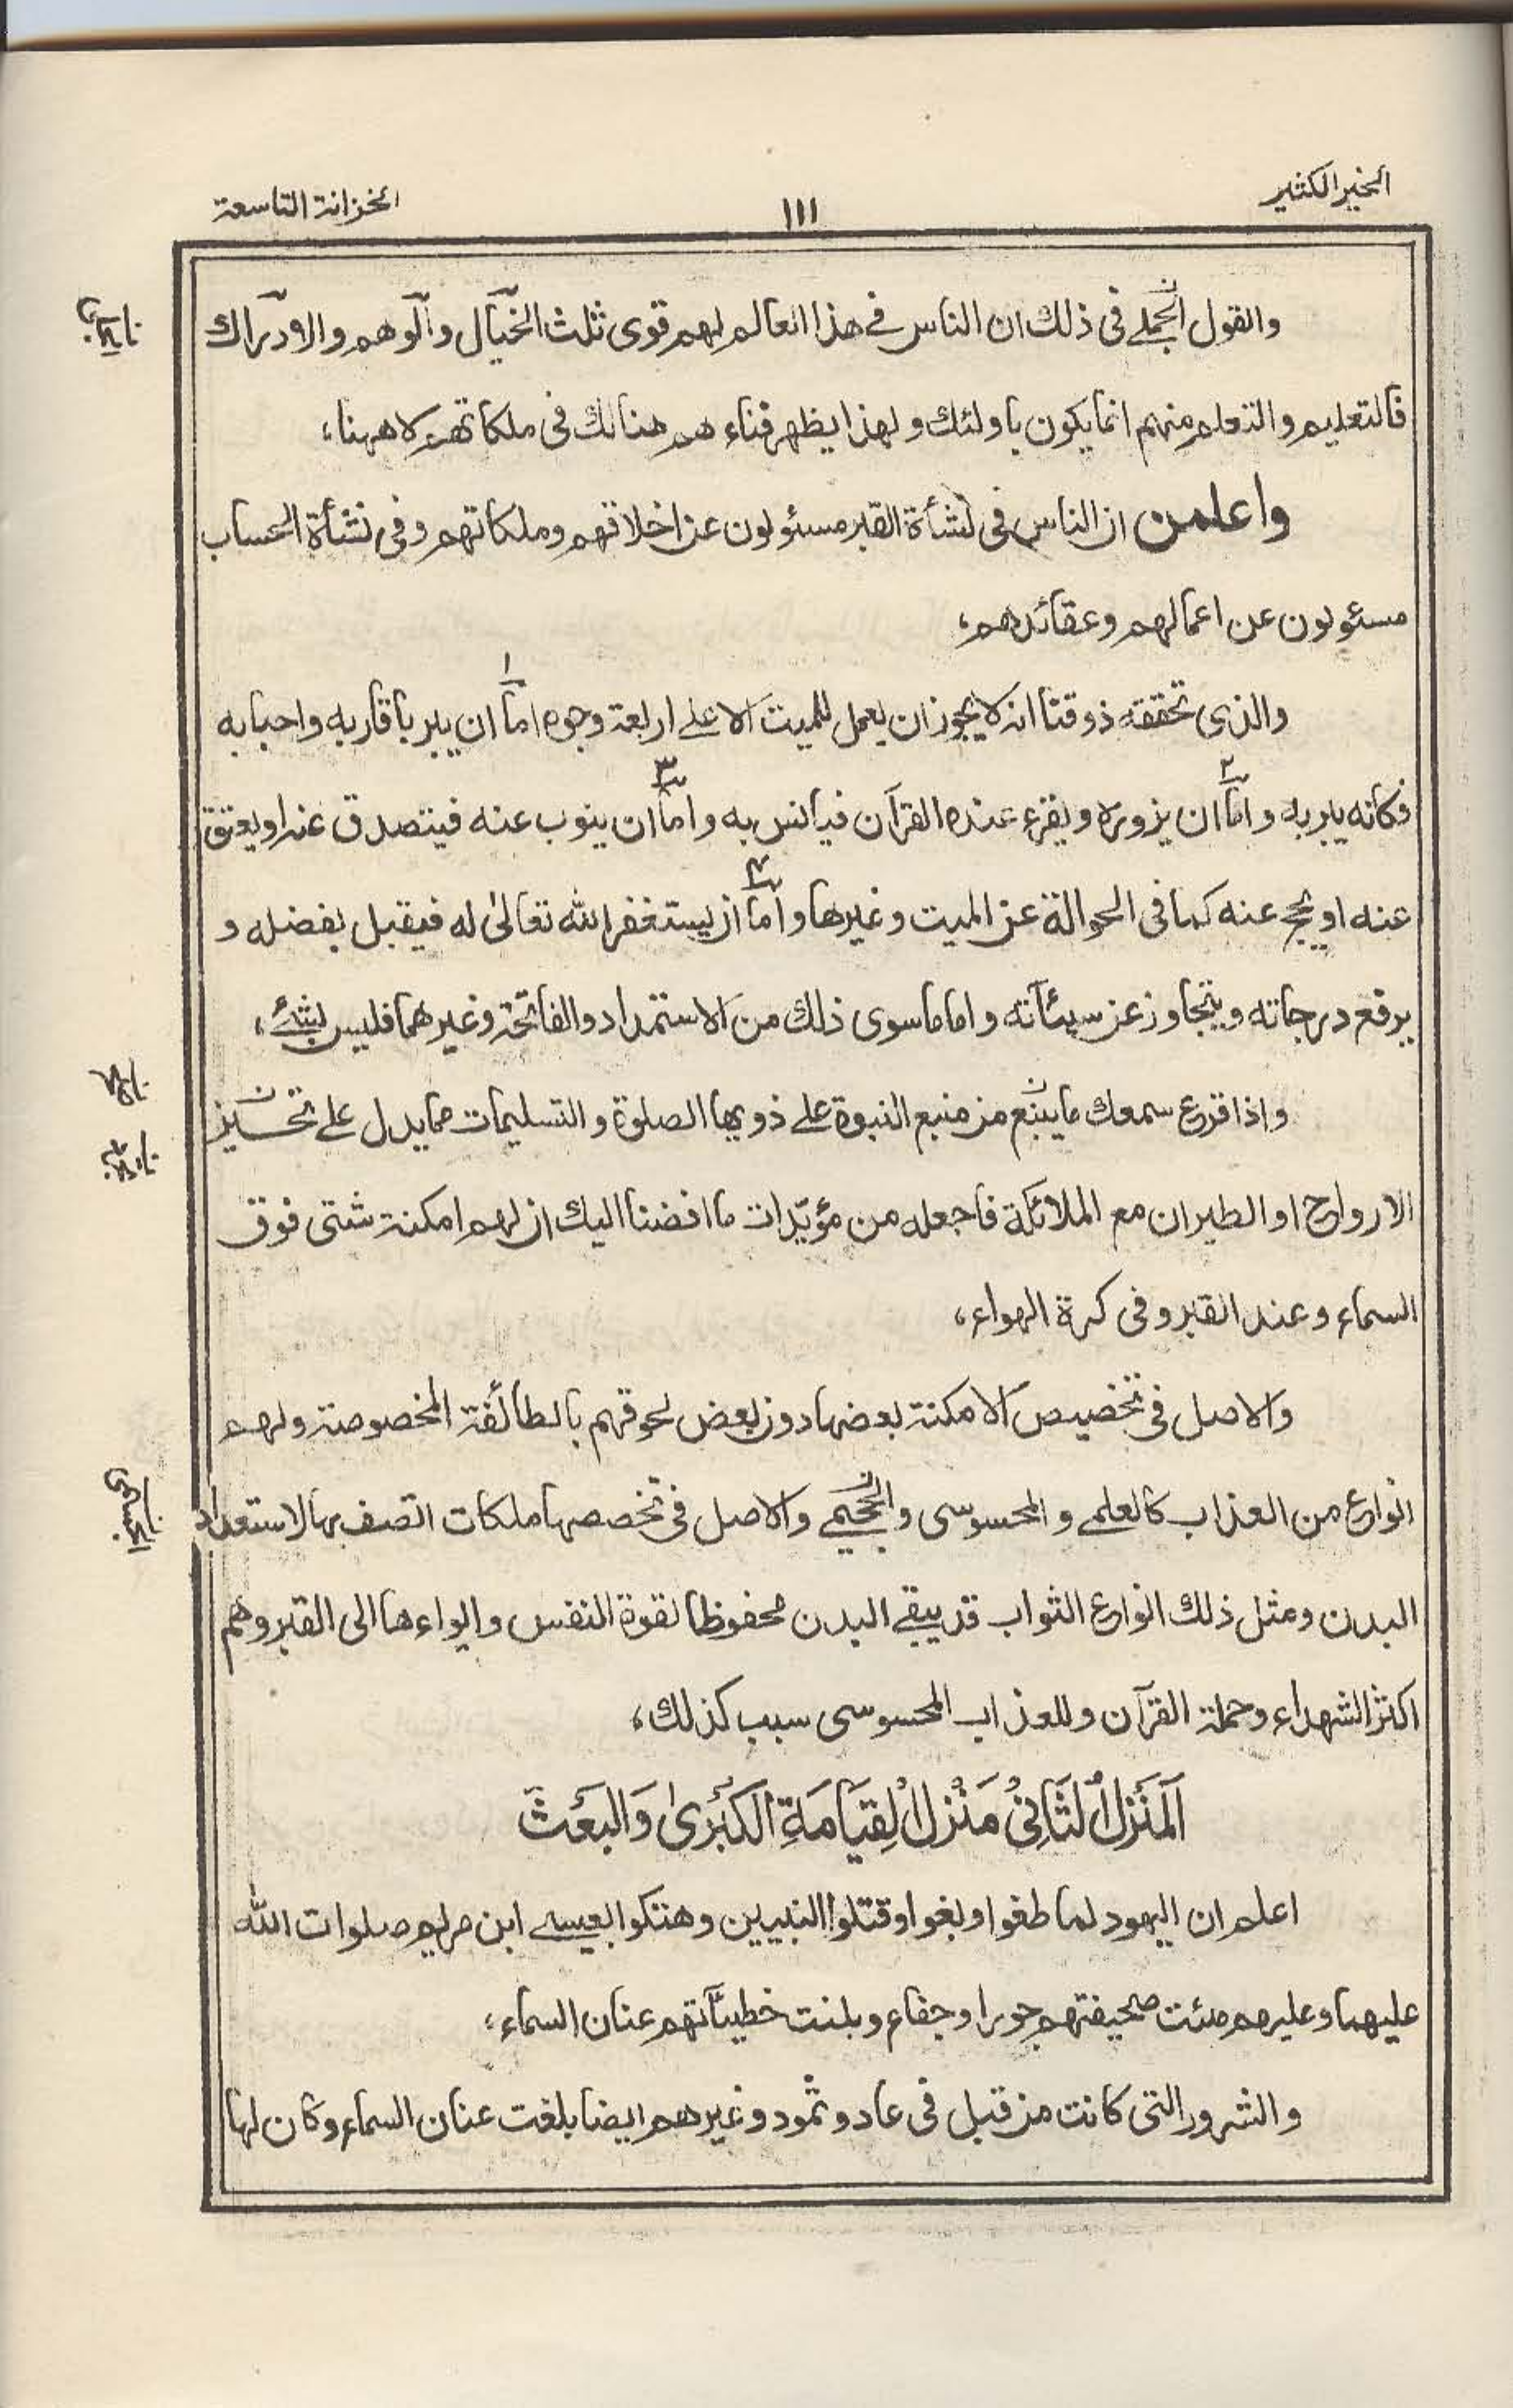 الخير الكثير
١١١
الخزانة التاسعة
والقول الجملے فی ذلك ان الناس فے هذا العالم لهم قوی ثلث الخيال والوهم والادراك
فالتعليم والتعلم منهم انما يكون باولئك ولهذا يظهر فناء هم هنالك فی ملكاتهم لا ههنا،
واعلمن ان الناس فی نشأة القبر مسئولون عن اخلاقهم وملكاتهم وفی نشأة الحساب
مسئولون عن اعمالهم وعقائدهم،
والذی تحققه ذوقنا انه لا يجوز ان يعمل للميت الا علے اربعة وجوه اما ١ ان يبر باقاربه واحبابه
فكانه يبر به واما ٢ ان يزوره ويقرء عنده القرآن فيانس به واما ٣ ان ينوب عنه فيتصدق عنه او يعتق
عنه او يحج عنه كما فی الحوالة عن الميت وغيرها واما ٤ ان يستغفر الله تعالیٰ له فيقبل بفضله و
يرفع درجاته ويتجاوز عن سيئآته واما ما سوی ذلك من الاستمداد والفاتحة وغيرهما فليس بشئے،
واذا قرع سمعك ما ينبع من منبع النبوة علے ذويها الصلوة والتسليمات مما يدل علے
الارواح او الطيران مع الملائكة فاجعله من مؤيّدات ما افضنا اليك ان لهم امكنة شتی فوق
السماء وعند القبر وفی كرة الهواء،
والاصل فی تخصيص الامكنة بعضها دون بعض لحوقهم بالطائفة المخصوصة ولهم
انواع من العذاب كالعلمے والمحسوسی والاصل فی تخصصها ملكات اتصف بها لاستعداد
البدن ومثل ذلك انواع الثواب قد يبقے البدن محفوظا لقوة النفس وايواءها الی القبر وهم
اكثر الشهداء وحملة القرآن وللعذاب المحسوسی سبب كذلك،
اَلْمَنْزِلُ الثَّانِیْ مَنْزِلُ الْقِيَامَةِ الْكُبْریٰ وَالْبَعْثَ
اعلم ان اليهود لما طغوا وبغوا وقتلوا النبيين وهتكوا بعيسے ابن مريم صلوات الله
عليهما وعليهم مئت صحيفتهم جورا وجفاء وبلغت خطيئآتهم عنان السماء،
والشرور التی كانت من قبل فی عاد وثمود وغيرهم ايضا بلغت عنان السماء وكان لها